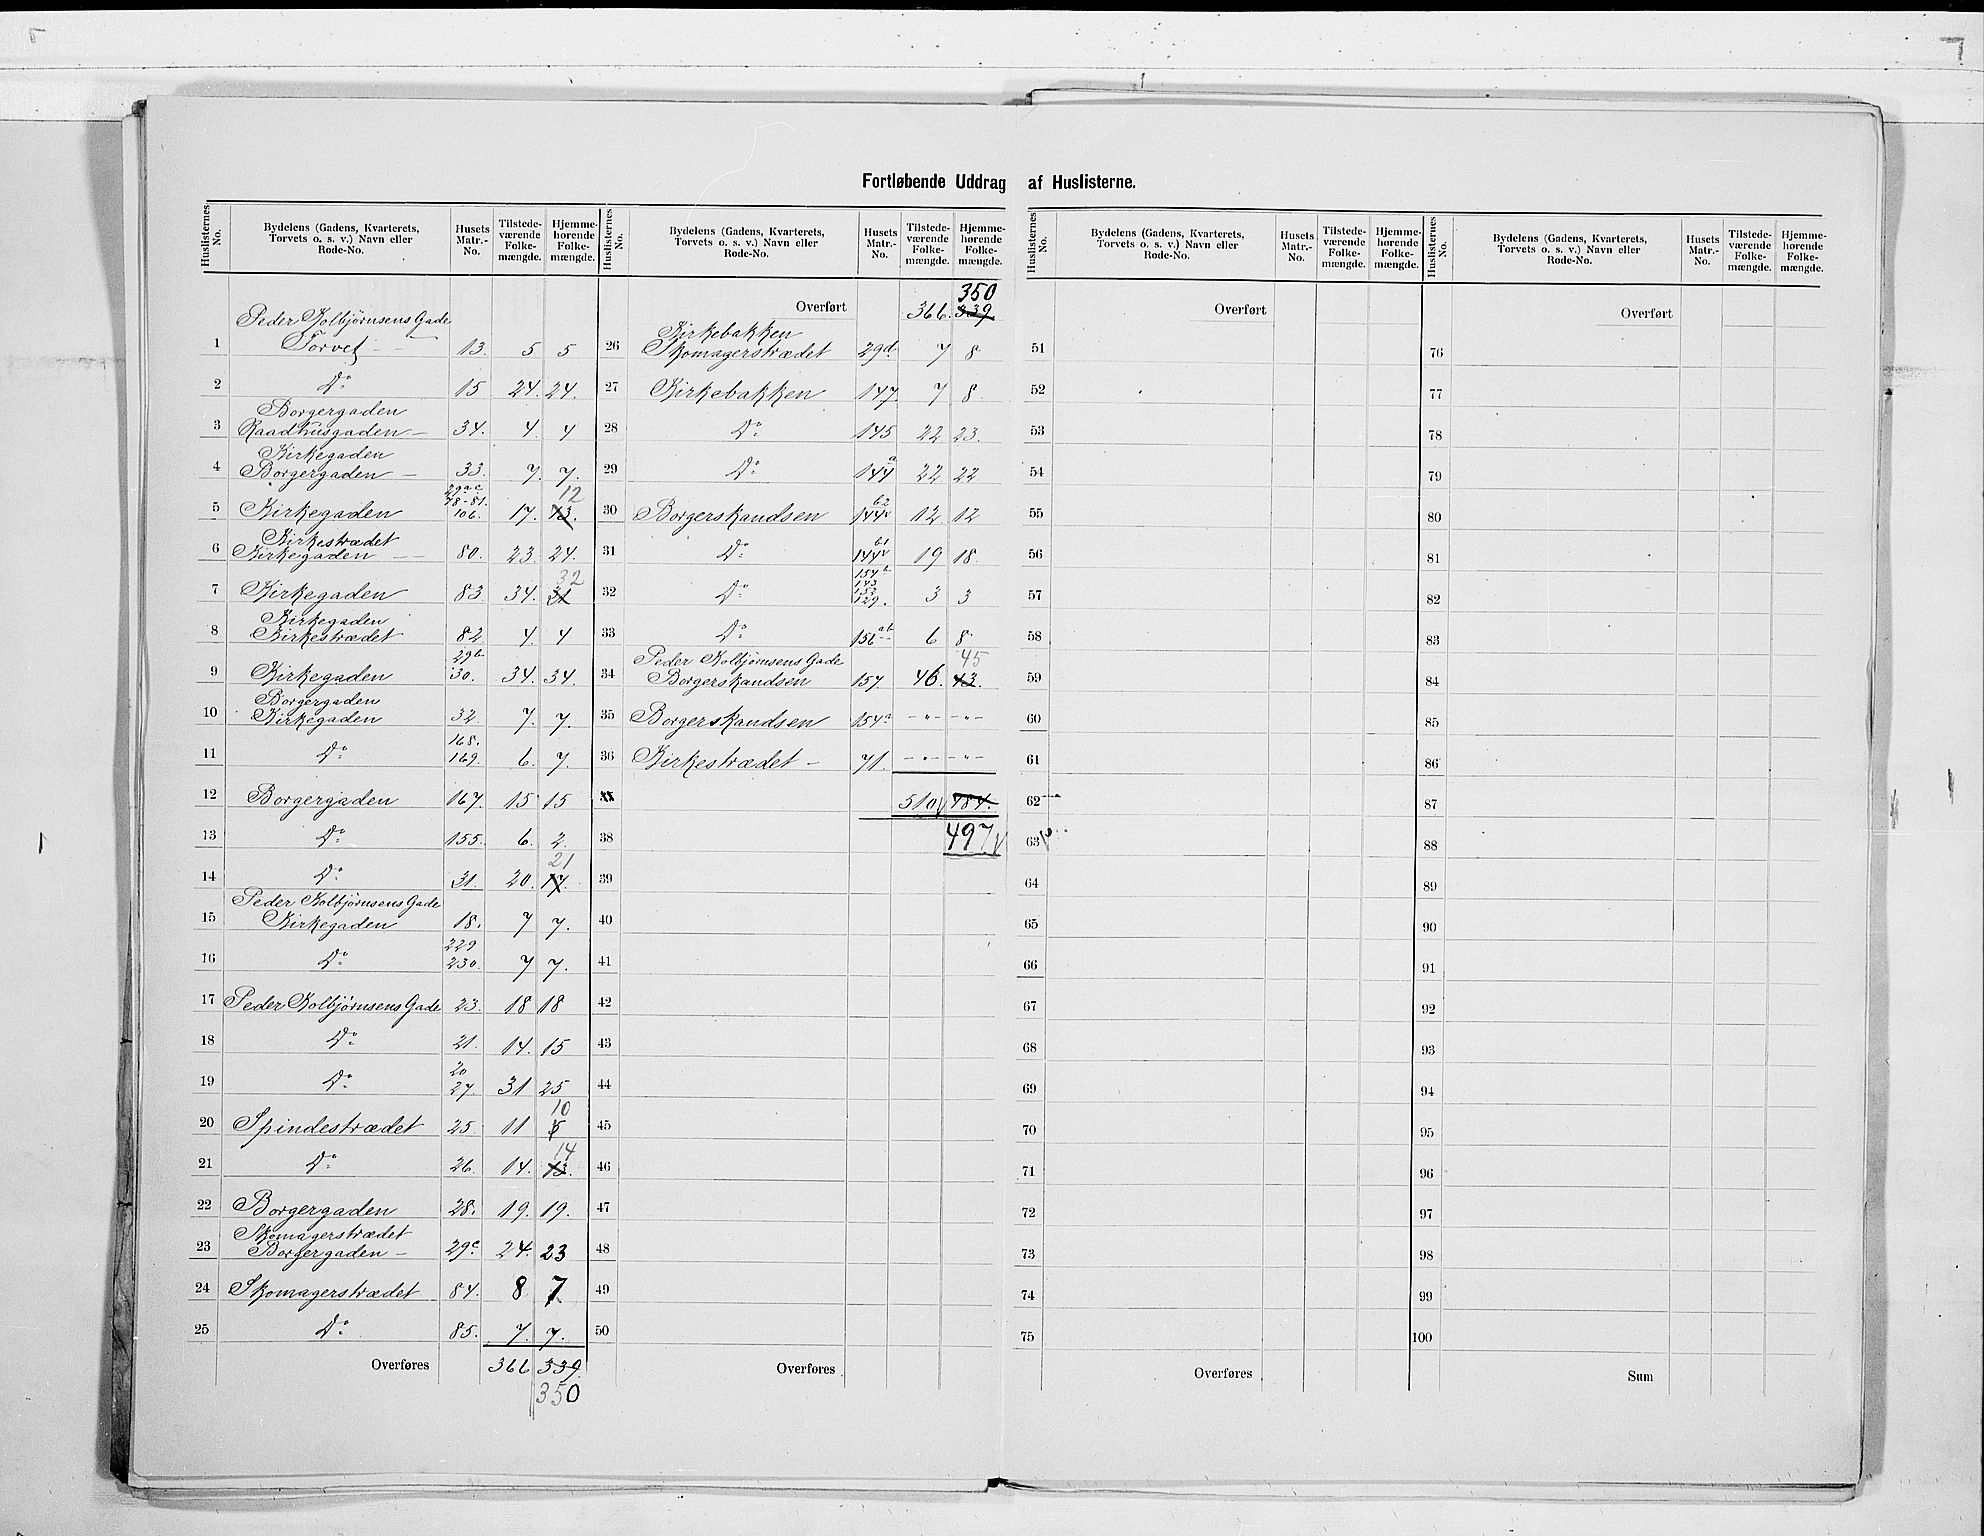 Fortløbende Uddrag af Huslisterne.
Huslisternes No. Bydelens (Gadens, Kvarterets, Torvets o. s. v.) Navn eller Rode-No. Husets Matr.-No. Tilstedeværende Folkemængde. Hjemmehørende Folkemængde.
Peder Kolbjørnsens Gade
1 Torvet — 13. 5 5
2 Do 15 24. 24.
Borgergaden
3 Raadhusgaden — 34. 4. 4
Kirkegaden
4 Borgergaden — 33. 7. 7.
29 a c
78-81. 12
5 Kirkegaden 106. 17. 13.
Kirkestrædet
6 Kirkegaden — 80. 23. 24.
32
7 Kirkegaden 83 34. 31
Kirkegaden
8 Kirkestrædet 82. 4. 4
29b
9 Kirkegaden 30. 34. 34.
Borgergaden
10 Kirkegaden 32. 7. 7.
168.
11 Do 169. 6. 7.
12 Borgergaden 167. 15 15
13 Do 155. 6. 2.
21
14 Do 31. 20. 17.
Peder Kolbjørnsens Gade
15 Kirkegaden 18. 7 7.
229
16 Do 230. 7 7.
17 Peder Kolbjørnsens Gade 23. 18 18
18 Do 21. 14. 15
20
19 Do 27. 31 25
10
20 Spindestrædet 25. 11
14
21 Do 26. 14. 13.
22 Borgergaden 28. 19. 19.
Skomagerstrædet
23 Borgergaden — 29c 24. 23
24 Skomagerstrædet 84. 8 7
25 Do 85. 7. 7.
Overføres 366 339.
350
Huslisternes No. Bydelens (Gadens, Kvarterets, Torvets o. s. v.) Navn eller Rode-No. Husets Matr.-No. Tilstedeværende Folkemængde. Hjemmehørende Folkemængde.
350
Overført 366. 339
Kirkebakken
26 Skomagerstrædet 29d 7 8
27 Kirkebakken 147. 7 8.
28 Do 145 22 23.
29 Do 144a 22 22
30 Borgerskandsen 144 b2 12 12
31 Do 144 b1 19 18
154b
143
153
32 Do 129. 3 3
33 Do 156 ab 6 8
Peder Kolbjørnsens Gade 45
34 Borgerskandsen 157. 46. 43.
35 Borgerskandsen 154a - " - - " -
36 Kirkestrædet — 71. - " - - " -
510 484.
38 497
39
40
41
42
43
44
45
46
47
48
49
50
Overføres
Huslisternes No. Bydelens (Gadens, Kvarterets, Torvets o. s. v.) Navn eller Rode-No. Husets Matr.-No. Tilstedeværende Folkemængde. Hjemmehørende Folkemængde.
Overført
51
52
53
54
55
56
57
58
59
60
61
62
63
64
65
66
67
68
69
70
71
72
73
74
75
Overføres
Huslisternes No. Bydelens (Gadens, Kvarterets, Torvets o. s. v.) Navn eller Rode-No. Husets Matr.-No. Tilstedeværende Folkemængde. Hjemmehørende Folkemængde.
Overført
76
77
78
79
80
81
82
83
84
85
86
87
88
89
90
91
92
93
94
95
96
97
98
99
100
Sum